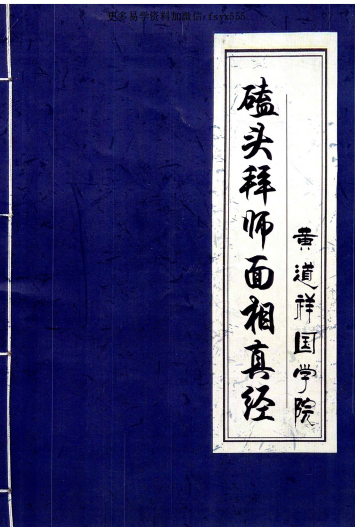 更多易学资料加微信:fsyx555
磕头拜师面相真经
黄道祥国学院